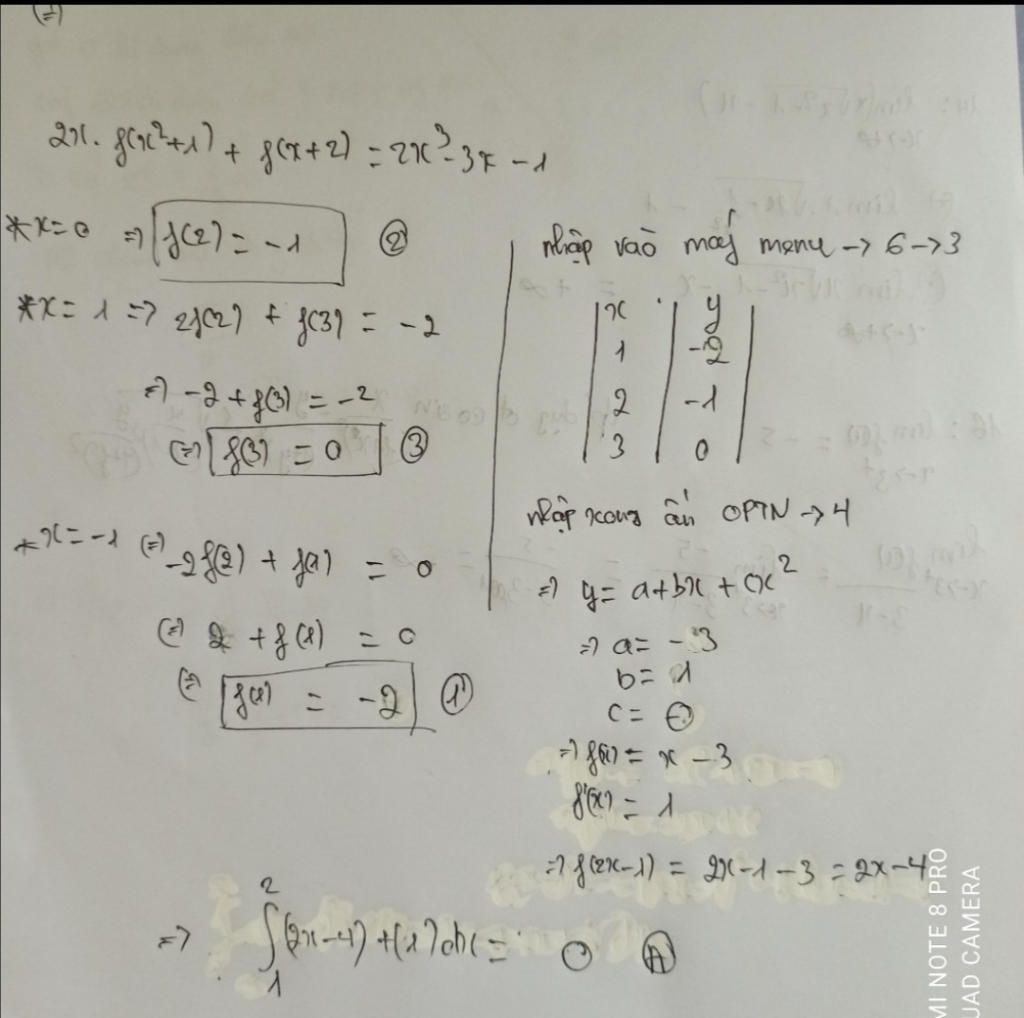 (=)
2x. f(x²+1) + f(x+2) = 2x³-3x-1
*x=0 => f(2) = -1 ②
*x= 1 => 2f(2) + f(3) = -2
=> -2 + f(3) = -2
(=) f(3) = 0 ③
*x=-1 (=) -2f(2) + f(1) = 0
(=) 2 + f(1) = 0
(=) f(1) = -2 ①
nhập vào máy menu -> 6 -> 3
x y
1 -2
2 -1
3 0
nhập xong ấn OPTN -> 4
=> y= a+bx+cx²
=> a= -3
b= 1
c= 0
=> f(x) = x - 3
f'(x) = 1
=> f(2x-1) = 2x-1-3 = 2x-4
=> ∫₁² (2x-4)+(1)dx = 0 Ⓐ
MI NOTE 8 PRO
UAD CAMERA